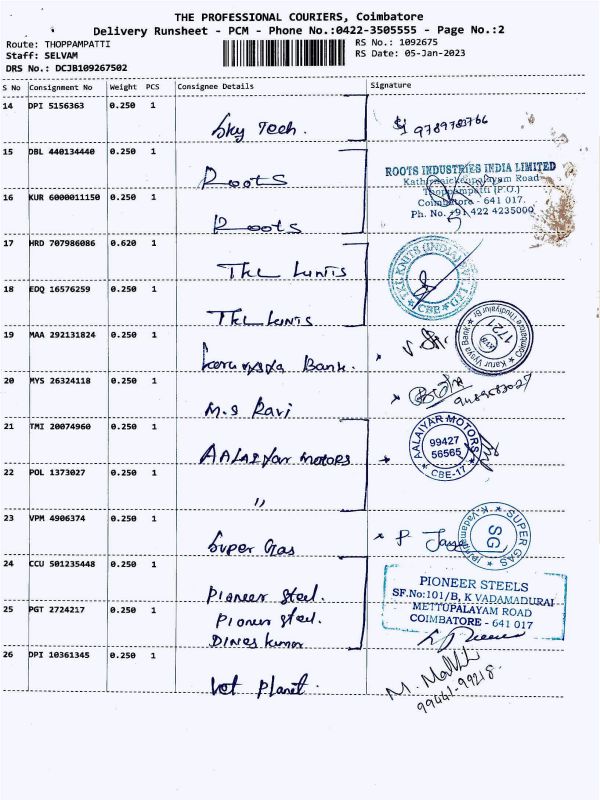 THE PROFESSIONAL COURIERS, Coimbatore
Delivery Runsheet - PCM - Phone No.:0422-3505555 - Page No.:2
Route: THOPPAMPATTI
RS No.: 1092675
Staff: SELVAM
RS Date: 05-Jan-2023
DRS No.: DCJB109267502
S No Consignment No Weight PCS Consignee Details Signature
14 DPI 5156363 0.250 1
Sky Tech. 9789783766
15 DBL 440134440 0.250 1
Roots
ROOTS INDUSTRIES INDIA LIMITED
Kathirnaickenpalayam Road
Thoppampatti (P.O.)
Coimbatore - 641 017.
Ph. No. +91 422 4235000
16 KUR 6000011150 0.250 1
Roots
17 HRD 707986086 0.620 1
TKL KNITS
TKL KNITS (INDIA) PVT. LTD.
CBE
18 EDQ 16576259 0.250 1
TKL KNITS
19 MAA 292131824 0.250 1
Karurvysya Bank.
Karur Vysya Bank
1721
20 MYS 26324118 0.250 1
M.S Ravi
21 TMI 20074960 0.250 1
AALAIYAR MOTORS
AALAIYAR MOTORS
99427
56565
CBE-17
22 POL 1373027 0.250 1
"
23 VPM 4906374 0.250 1
Super Gas
SUPER GAS
SG
24 CCU 501235448 0.250 1
Pioneer Steel.
PIONEER STEELS
SF.No:101/B, K VADAMADURAI
METTUPALAYAM ROAD
COIMBATORE - 641 017
25 PGT 2724217 0.250 1
Pioner Steel.
Dines kumar
26 DPI 10361345 0.250 1
Vet Planet.
99441-99218.